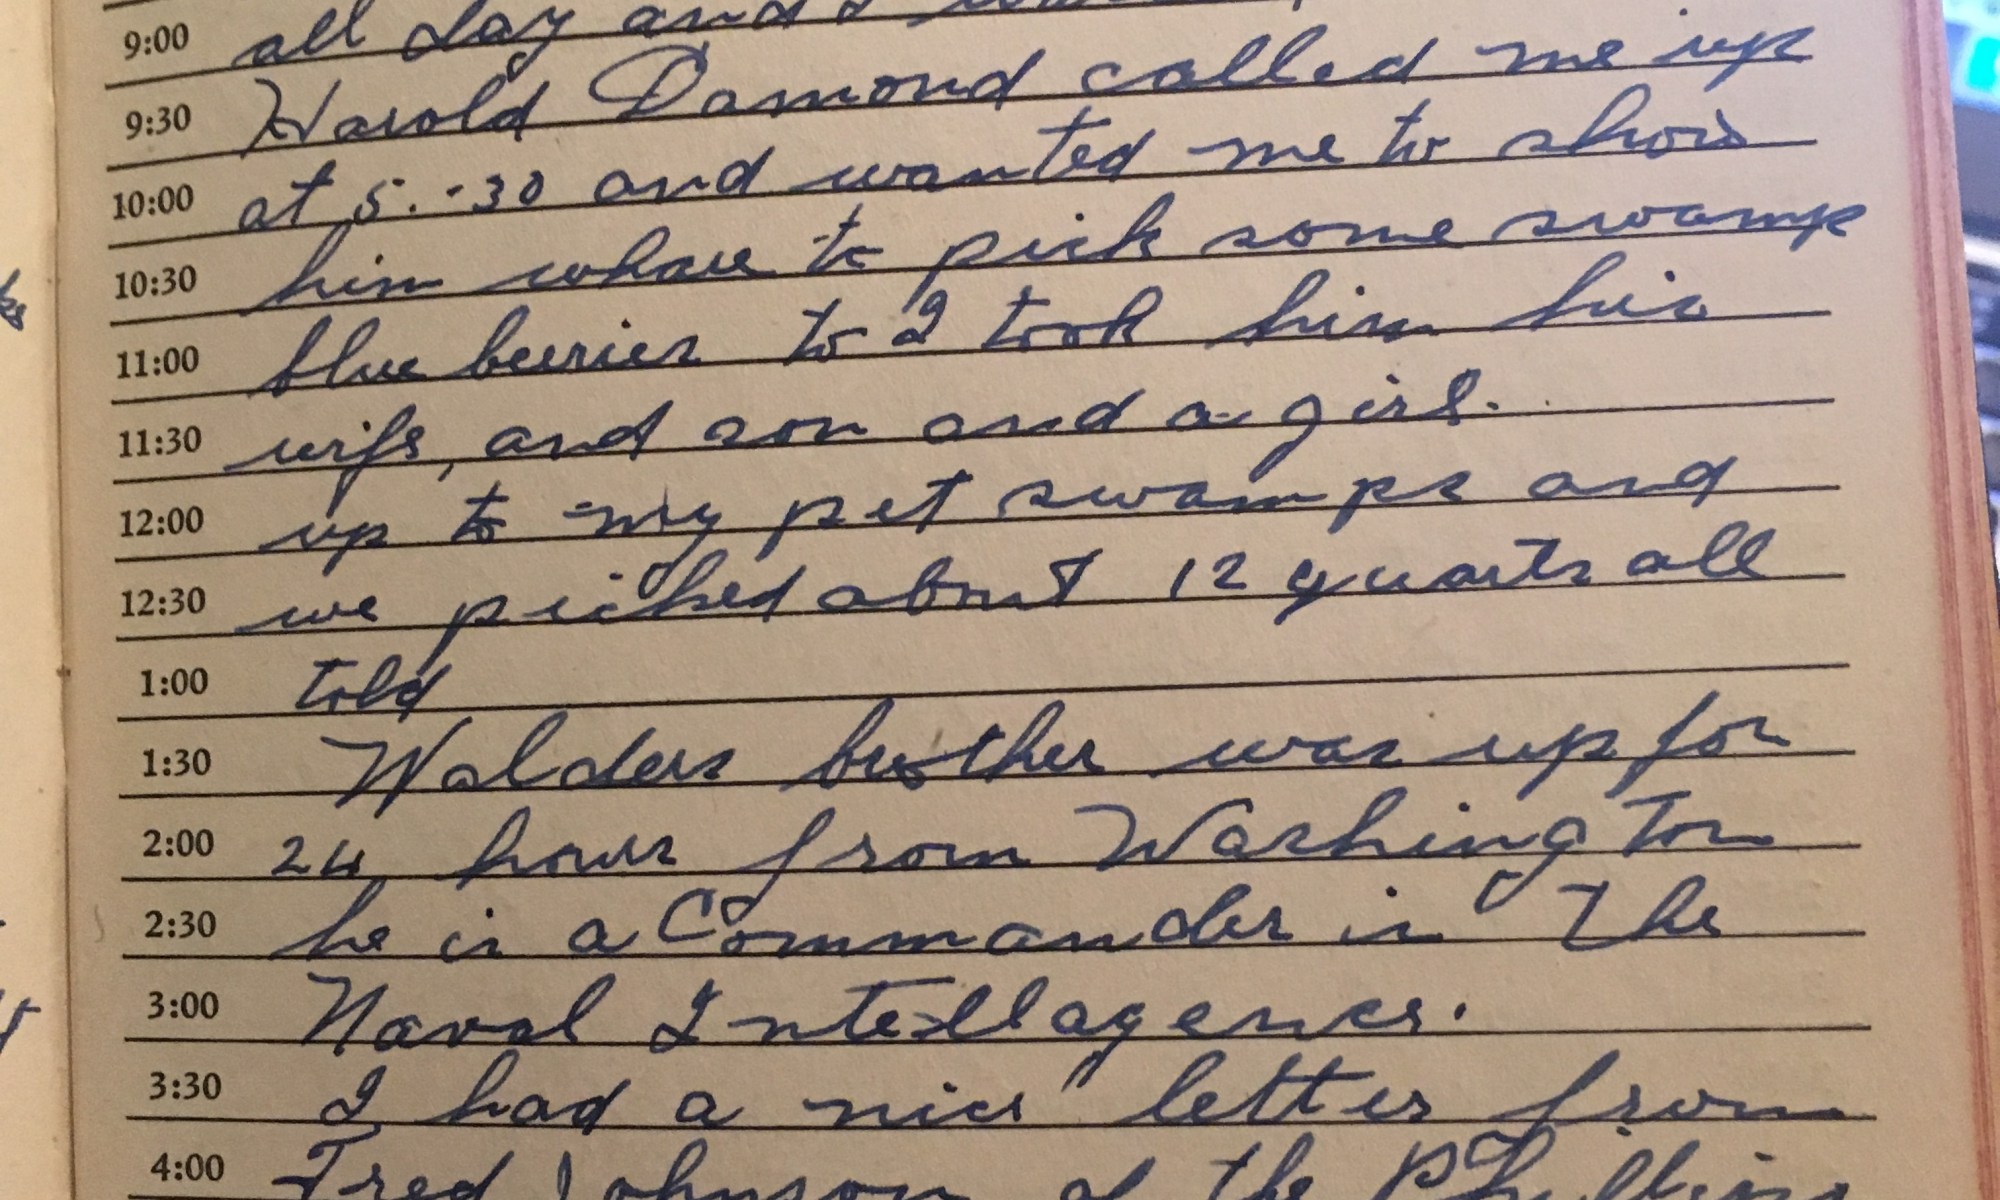 9:00 all day and I
9:30 Harold Damond called me up
10:00 at 5:-30 and wanted me to show
10:30 him whare to pick some swamp
11:00 blue beeries to I took him his
11:30 wife, and son and a girl.
12:00 up to my pet swamps and
12:30 we picked about 12 quarts all
1:00 told
1:30 Walders brother was up for
2:00 24 hours from Washington
2:30 he is a Commander in The
3:00 Naval Intellagence.
3:30 I had a nice letter from
4:00 Fred Johnson of the